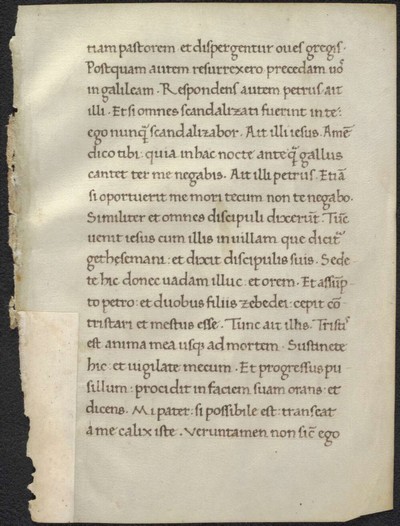 tiam pastorem et dispergentur oues gregis.
Postquam autem resurrexero precedam uo᷒
in galileam. Respondens autem petrus ait
illi. Et si omnes scandalizati fuerint in te:
ego nunq̄ scandalizabor. Ait illi iesus. Amē
dico tibi: quia in hac nocte anteq̄ gallus
cantet ter me negabis. Ait illi petrus. Etiā
si oportuerit me mori tecum non te negabo.
Similiter et omnes discipuli dixerūt. Tūc
uenit iesus cum illis in uillam que dicit᷑
gethesemani: et dixit discipulis suis. Sede
te hic donec uadam illuc: et orem. Et assūp
to petro: et duobus filiis zebedei: cepit cō
tristari et mestus esse. Tunc ait illis. Tristi᷒
est anima mea usq; ad mortem. Sustinete
hic: et uigilate mecum. Et progressus pu
sillum: procidit in faciem suam orans: et
dicens. Mi pater: si possibile est: transeat
a me calix iste. Veruntamen non sic̄ ego